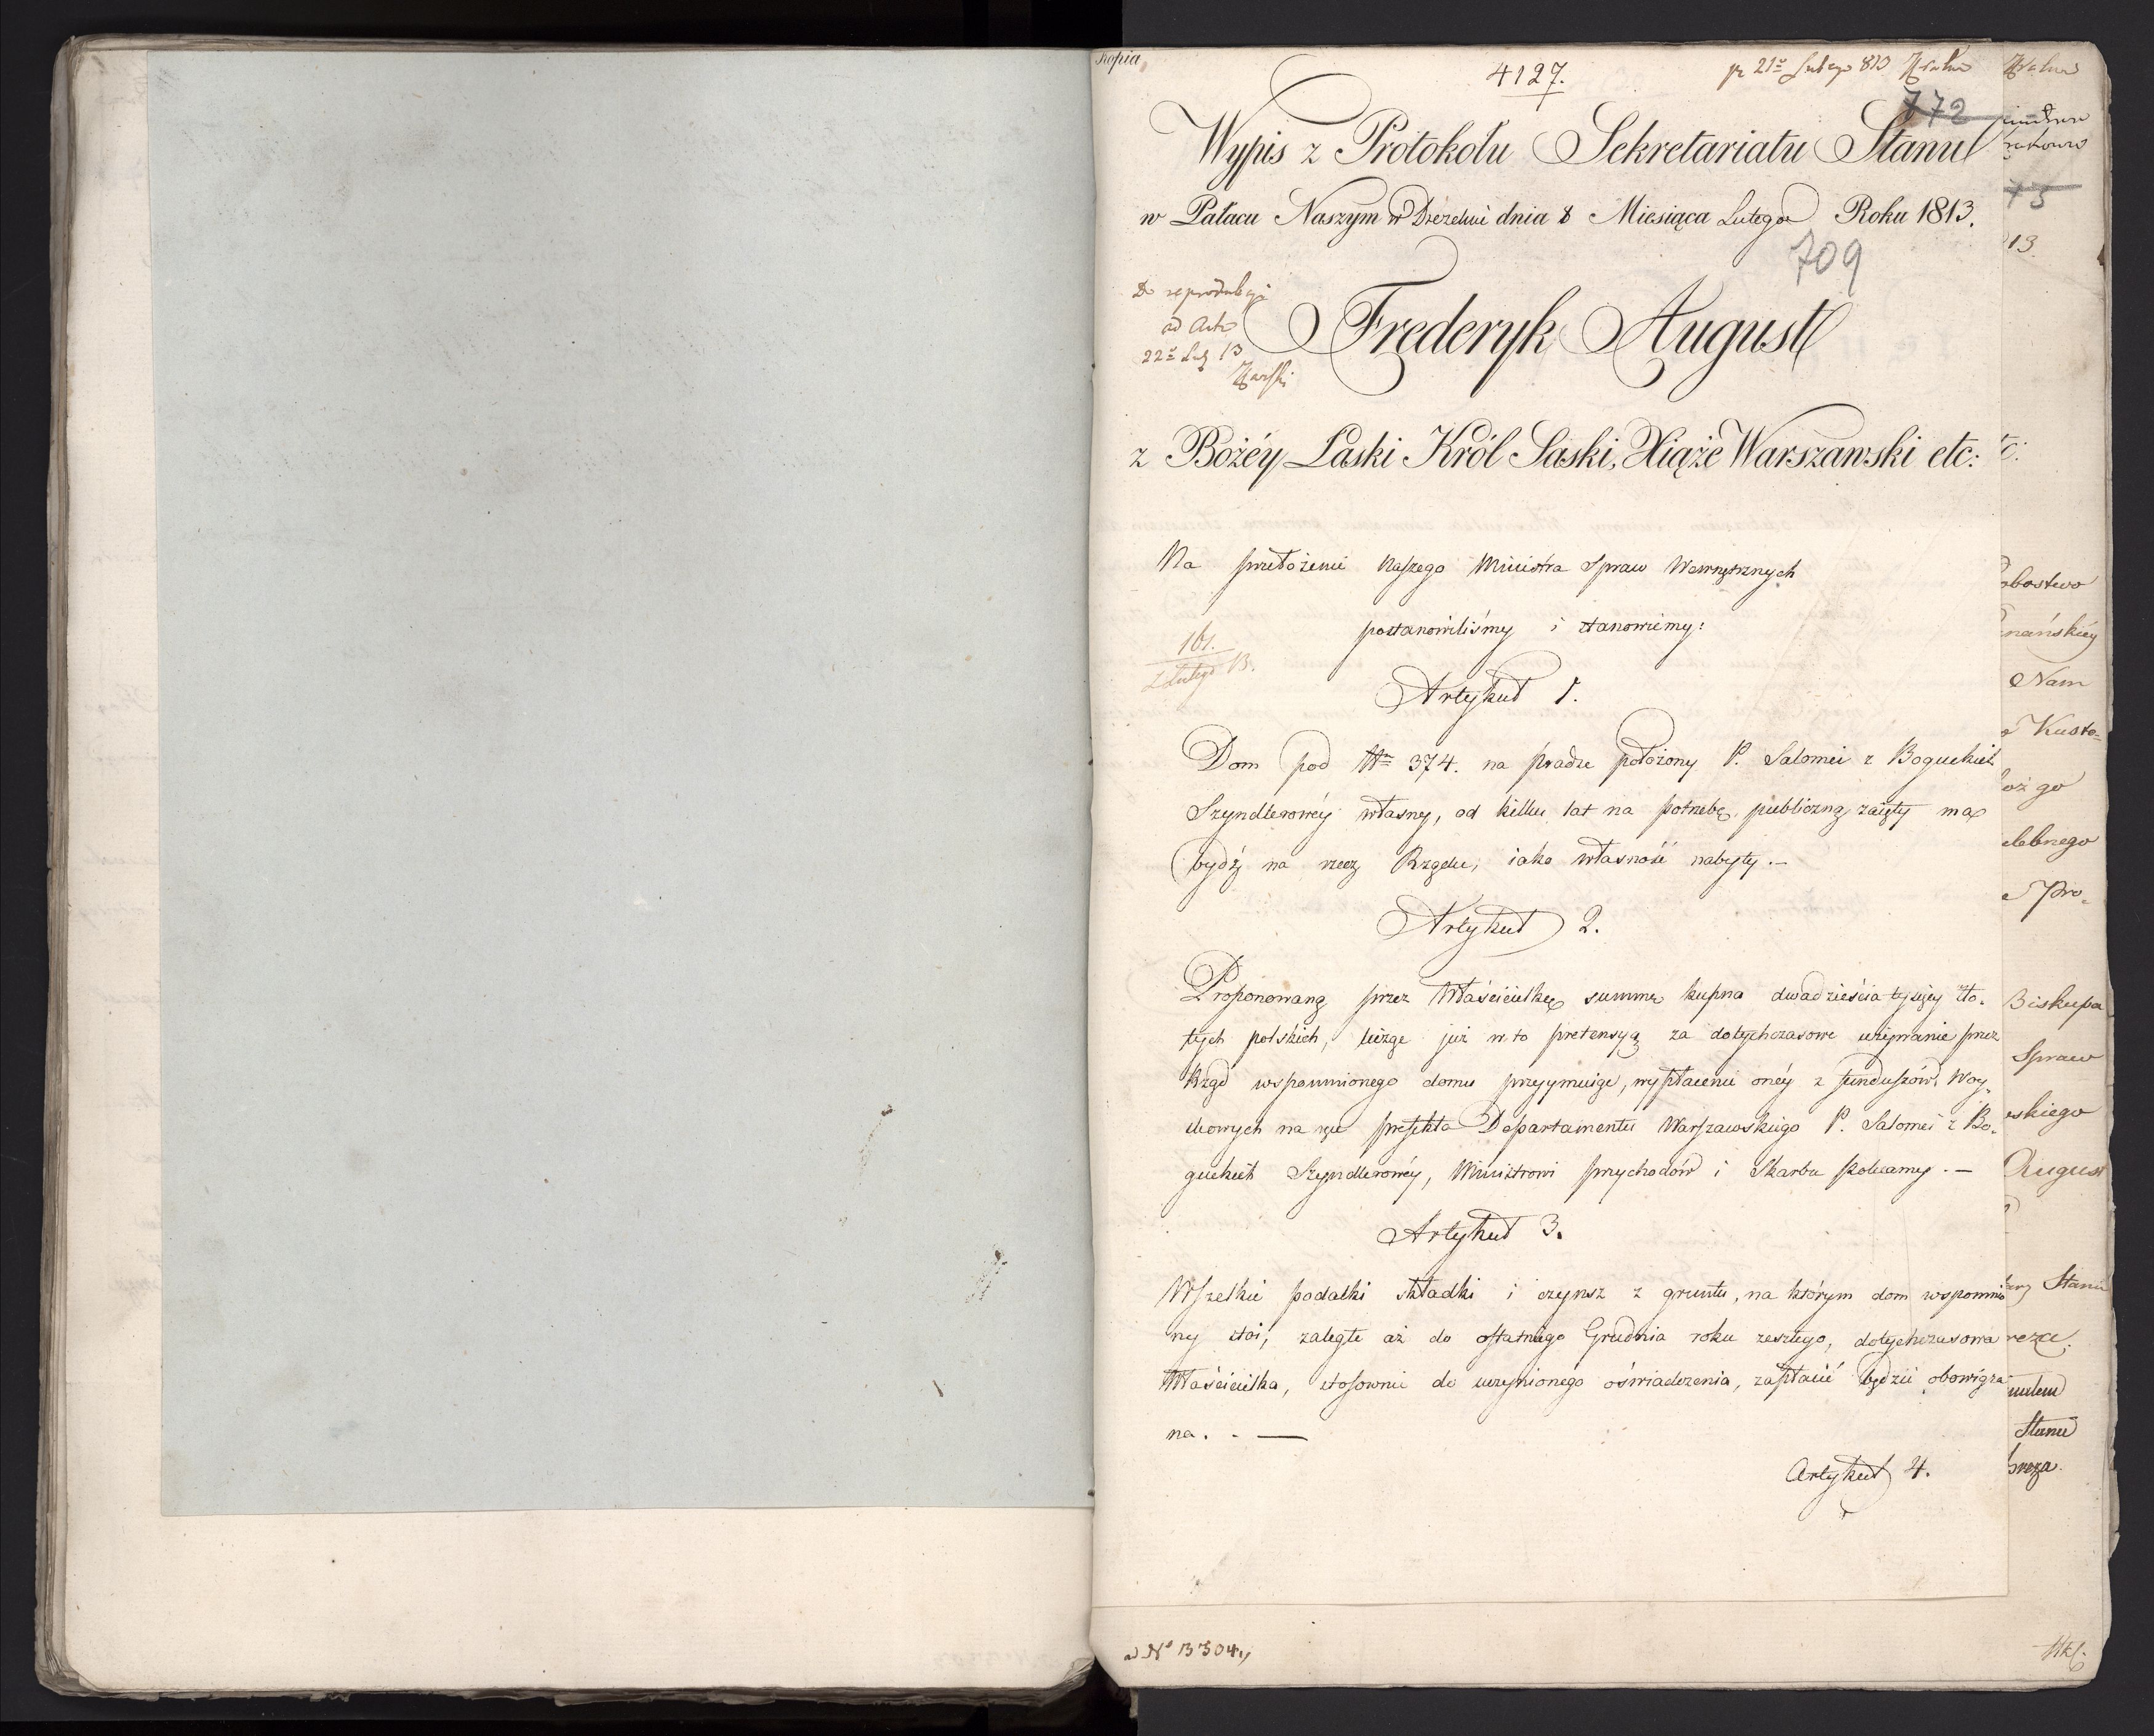 Kopia
4127.
pr 21º Lutego 813
772
Wypis z Protokołu Sekretariatu Stanu
w Pałacu Naszym w Dreznie dnia 8 Miesiąca Lutego Roku 1813.
709
Do reprodukcyi
ad Acta
22º Lut 13
Frederyk August
z Bożéy Łaski Król Saski, Xiąże Warszawski etc:
Na przełożenie Naszego Ministra Spraw Wewnętrznych
postanowiliśmy i stanowiemy:
161.
Lutego 13.
Artykuł 1.
Dom pod Nr 374. na Pradze położony P. Salomei z Boguckich
Szyndlerowéy własny, od kilku lat na potrzebę publiczną zaięty ma
bydź na rzecz Rządu, iako własność nabyty. —
Artykuł 2.
Proponowaną przez Właścicielkę summę kupna dwadzieścia tysięcy zło-
tych polskich, licząc już w to pretensyą za dotychczasowe używanie przez
Rząd wspomnionego domu przyymuiąc, wypłacenie onéy z funduszów Woy-
skowych na ręce Prefekta Departamentu Warszawskiego P. Salomei z Bo-
guckich Szyndlerowéy, Ministrowi Przychodów i Skarbu polecamy. —
Artykuł 3.
Wszelkie podatki składki i czynsz z gruntu, na którym dom wspomnio
ny stoi, zaległe aż do ostatniego Grudnia roku zeszłego, dotychczasowa
Właścicielka, stosownie do uczynionégo oświadczenia, zapłacić będzie obowiąza
na. - —
Artykuł 4.
ad Nº 13304
13.
tc:
Nam
Kusto-
Pro-
Biskupa
Spraw
skiego
August
Stanu
Stanu